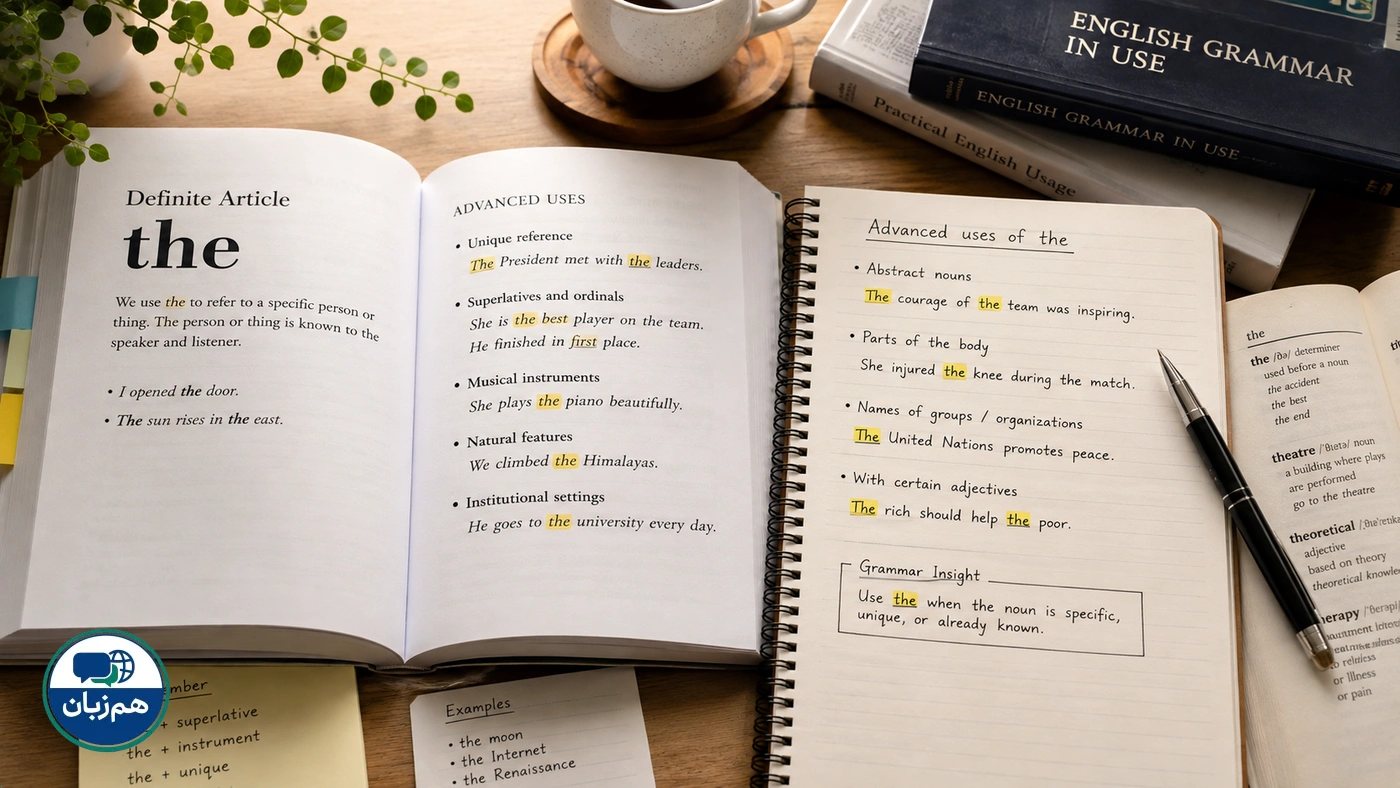 ENGLISH GRAMMAR
IN USE
ENGLISH GRAMMAR IN USE
Practical English Usage
Definite Article
the
We use the to refer to a specific person or
thing. The person or thing is known to the
speaker and listener.
• I opened the door.
• The sun rises in the east.
ADVANCED USES
• Unique reference
The President met with the leaders.
• Superlatives and ordinals
She is the best player on the team.
He finished in first place.
• Musical instruments
She plays the piano beautifully.
• Natural features
We climbed the Himalayas.
• Institutional settings
He goes to the university every day.
Advanced uses of the
• Abstract nouns
The courage of the team was inspiring.
• Parts of the body
She injured the knee during the match.
• Names of groups / organizations
The United Nations promotes peace.
• With certain adjectives
The rich should help the poor.
Grammar Insight
Use the when the noun is specific,
unique, or already known.
the
the /ðə/ determiner
used before a noun
the accident
the best
the end
theatre /'θɪətə/ noun
a building where plays
are performed
go to the theatre
theoretical
adjective
based on theory
theoretical
or Illness
or pain
mber
+ superlative
the + instrument
the + unique
Examples
• the moon
• the Internet
• the Renaissance
هم‌زبان